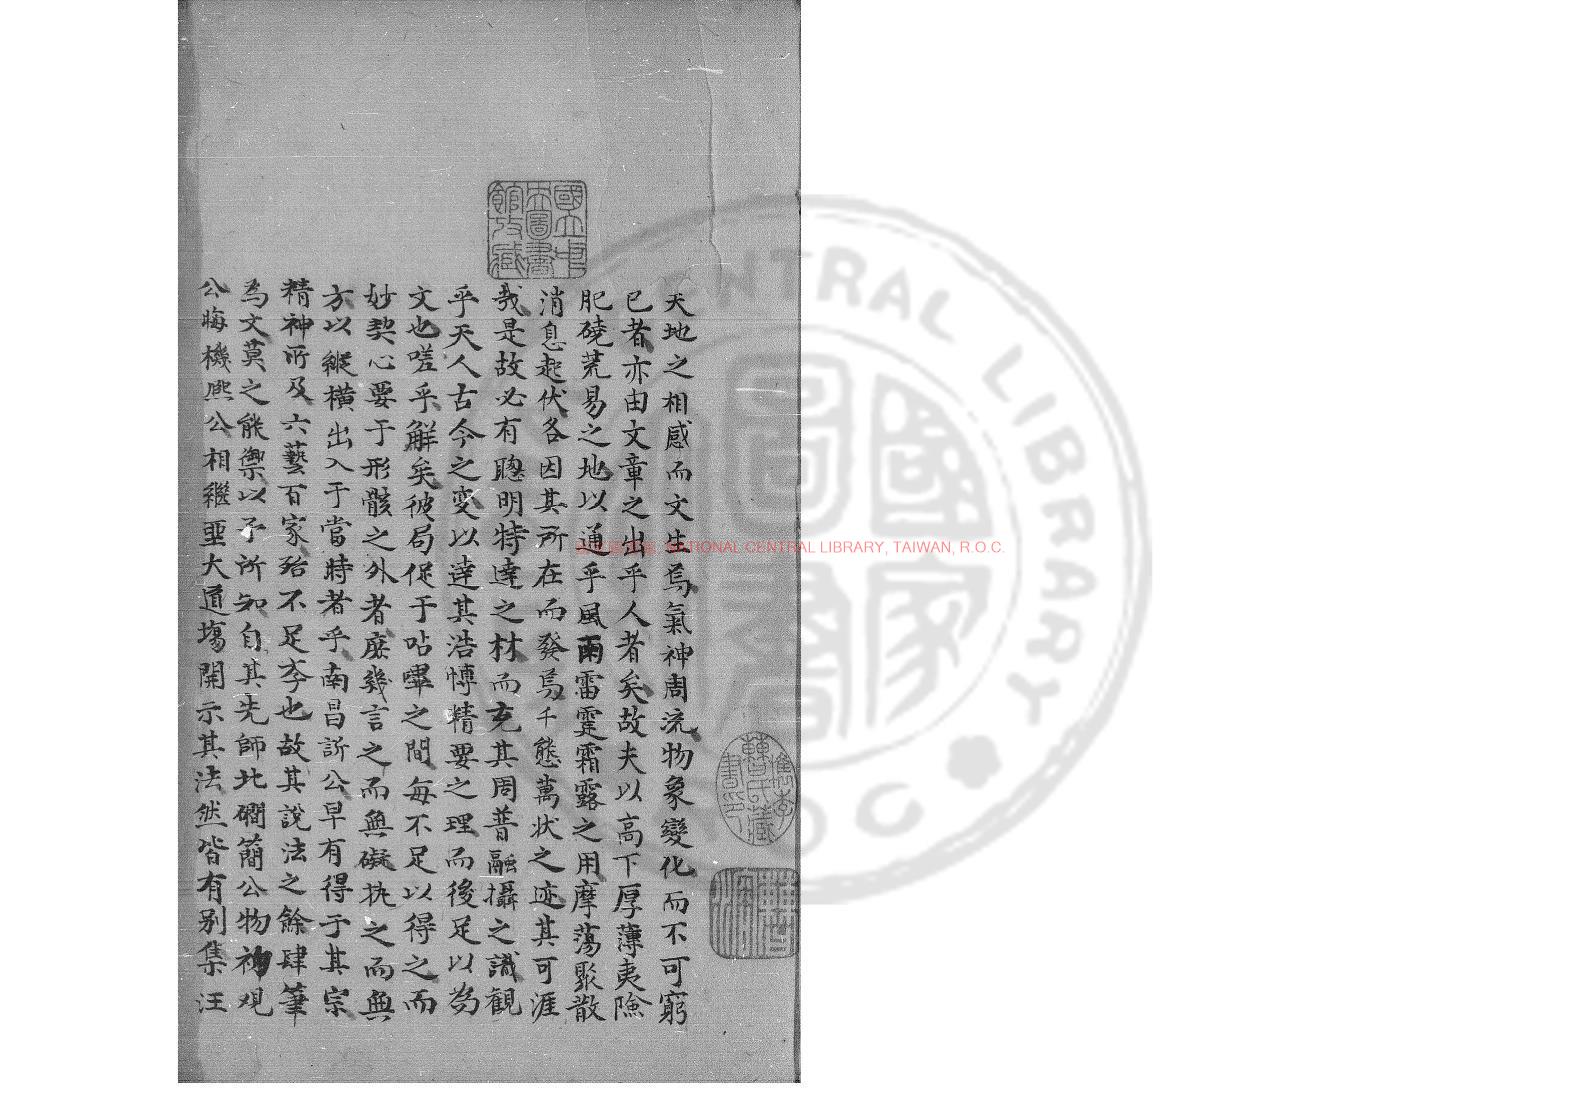 天地之相感而文生焉氣神周流物象變化而不可窮
已者亦由文章之出乎人者矣故夫以高下厚薄夷險
肥磽荒易之地以通乎風雨雷霆霜露之用摩蕩聚散
消息起伏各因其所在而發焉千態萬狀之迹其可涯
哉是故必有聰明特達之材而克其周普融攝之識觀
乎天人古今之变以達其浩博精要之理而後足以為
文也嗟乎觧矣彼局促于呫嗶之間每不足以得之而
妙契心要于形骸之外者庶幾言之而無礙执之而無
方以縱橫出入于當時者乎南昌訢公早有得于其宗
精神所及六藝百家殆不足李也故其說法之餘肆筆
為文莫之能禦以予所知自其先師北磵簡公物初观
公晦機熙公相繼亜大道塲開示其法然皆有别集汪
NATIONAL CENTRAL LIBRARY, TAIWAN, R.O.C.
國立中央圖書館收藏
NTRAL LIBRARY
ROC
國家圖書